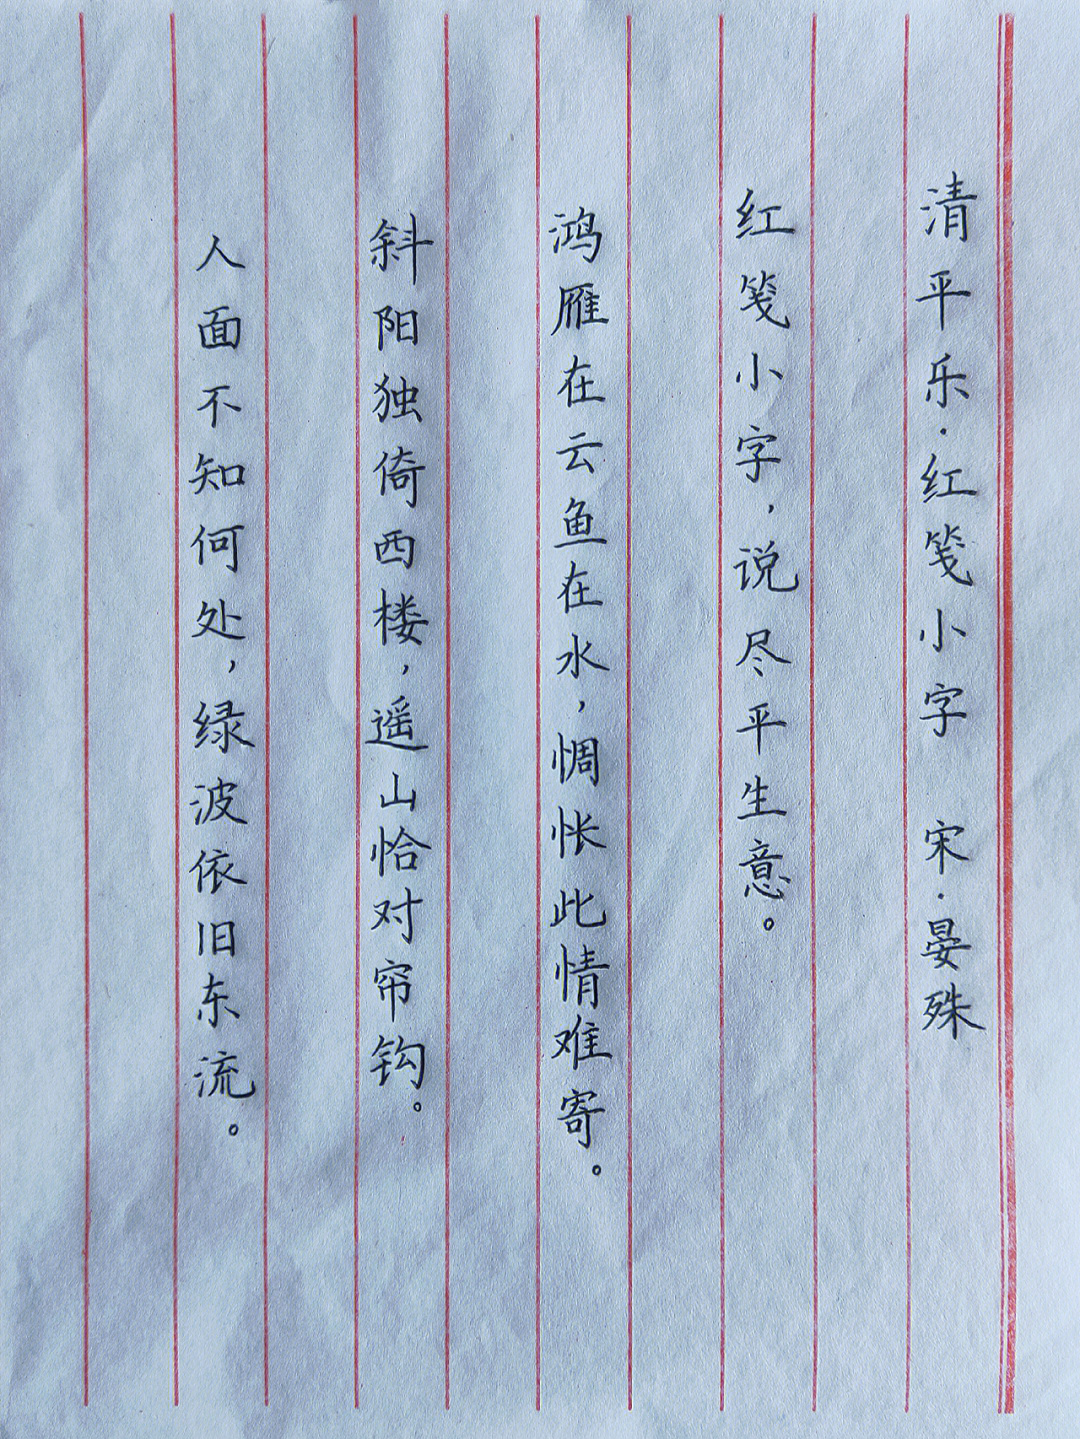 清平乐·红笺小字 宋·晏殊
红笺小字，说尽平生意。
鸿雁在云鱼在水，惆怅此情难寄。
斜阳独倚西楼，遥山恰对帘钩。
人面不知何处，绿波依旧东流。